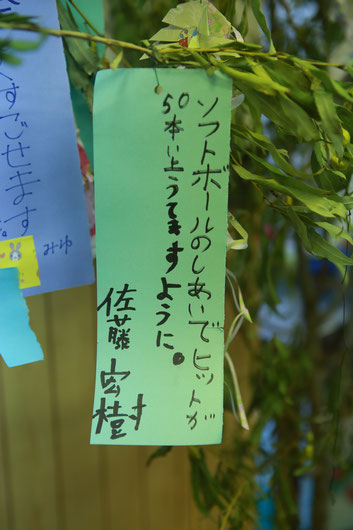 ソフトボールのしあいでヒットが
50本い上うてますように。
佐藤宏樹
くすごせます
みゆ